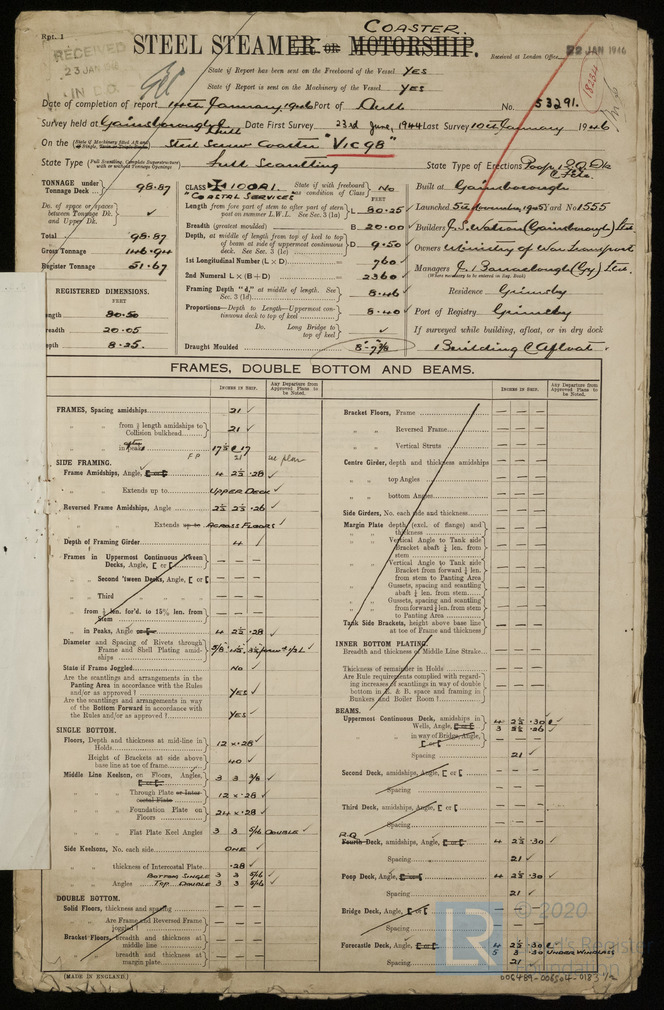 COASTER.
Rpt. 1
STEEL STEAMER OR MOTORSHIP.
RECEIVED
23 JAN
IN D.O.
Received at London Office
22 JAN 1946
State if Report has been sent on the Freeboard of the Vessel YES
State if Report is sent on the Machinery of the Vessel YES
Date of completion of report 14th January, 1946 Port of Hull No. 53291.
Survey held at Gainsborough & Hull Date First Survey 23rd June, 1944 Last Survey 10th January 1946
On the Steel Screw Coaster "VIC 98"
State Type (Full Scantling, Complete Superstructure with or without Tonnage Openings) Full Scantling State Type of Erections Poop, R.Q. Dk
& F'cle.
TONNAGE under Tonnage Deck ... 98.87
Do. of space or spaces between Tonnage Dk. and Upper Dk. ✓
Total 98.87
Gross Tonnage 146.94
Register Tonnage 51.67
REGISTERED DIMENSIONS.
FEET
ength 80.50
readth 20.05
epth 8.25.
CLASS ✠ 100A1. State if with freeboard as condition of Class No
"COASTAL SERVICES" FEET
Length from fore part of stem to after part of stern post on summer L.W.L. See Sec. 3 (1a) L 80.25
Breadth (greatest moulded) B 20.00
Depth, at middle of length from top of keel to top of beam at side of uppermost continuous deck. See Sec. 3 (1c) D 9.50
1st Longitudinal Number (L × D) 760
2nd Numeral L × (B+D) 2360
Framing Depth "d," at middle of length. See Sec. 3 (1d) 8.46
Proportions—Depth to Length—Uppermost continuous deck to top of keel 8.40
Do. Long Bridge to top of keel ✓
Draught Moulded 8'-7⅜"
Built at Gainsborough
Launched 5th November, 1945 Yard No 1555
Builders J.S. Watson (Gainsborough) Ltd.
Owners Ministry of War Transport
Managers J. Barraclough (Gy) Ltd.
(Where necessary to be entered in Reg. Book)
Residence Grimsby
Port of Registry Grimsby
If surveyed while building, afloat, or in dry dock
Building & Afloat.
FRAMES, DOUBLE BOTTOM AND BEAMS.
INCHES IN SHIP. Any Departure from Approved Plans to be Noted.
FRAMES, Spacing amidships 21 ✓
" " from ⅕ length amidships to Collision bulkhead 21 ✓
" " in peaks 17½ & 17
F.P. 21 see plan
SIDE FRAMING.
Frame Amidships, Angle, [ or [ 4 2½ .28 ✓
" " Extends up to UPPER DECK ✓
Reversed Frame Amidships, Angle 2½ 2½ .26 ✓
" " Extends up to ACROSS FLOORS ✓
Depth of Framing Girder 4
Frames in Uppermost Continuous 'tween Decks, Angle, [ or [ — — —
" " Second 'tween Decks, Angle, [ or [ — — —
" " Third " " " — — —
" " from ⅕ len. for'd. to 15% len. from Stem — — —
" " in Peaks, Angle or [ 4 2½ .28 ✓
Diameter and Spacing of Rivets through Frame and Shell Plating amidships
State if Frame Joggled No ✓
Are the scantlings and arrangements in the Panting Area in accordance with the Rules and/or as approved? YES ✓
Are the scantlings and arrangements in way of the Bottom Forward in accordance with the Rules and/or as approved? YES ✓
SINGLE BOTTOM.
Floors, Depth and thickness at mid-line in Holds 12 × .28 ✓
" Height of Brackets at side above base line at toe of frame 40 ✓
Middle Line Keelson, on Floors, Angles, [ or [ 3 3 3/8 ✓
" " Through Plate or Intercostal Plate 12 × .28 ✓
" " Foundation Plate on Floors 24 × .28 ✓
" " Flat Plate Keel Angles 3 3 5/16 DOUBLE ✓
Side Keelsons, No. each side ONE ✓
" " thickness of Intercostal Plate .28 ✓
BOTTOM SINGLE 3 3 5/16 ✓
" " Angles TOP DOUBLE 3 3 5/16 ✓
DOUBLE BOTTOM.
Solid Floors, thickness and spacing — — —
" " Are Frame and Reversed Frame joggled? — — —
Bracket Floors, breadth and thickness at middle line — — —
" " breadth and thickness at margin plate — — —
INCHES IN SHIP. Any Departure from Approved Plans to be Noted.
Bracket Floors, Frame — — —
" " Reversed Frame — — —
" " Vertical Struts — — —
Centre Girder, depth and thickness amidships — — —
" " top Angles — — —
" " bottom Angles — — —
Side Girders, No. each side and thickness — — —
Margin Plate depth (excl. of flange) and thickness — — —
" " Vertical Angle to Tank side Bracket abaft ¼ len. from stem — — —
" " Vertical Angle to Tank side Bracket forward ¼ len. from stem to Panting Area — — —
" " Gussets, spacing and scantling abaft ¼ len. from stem — — —
" " Gussets, spacing and scantling from forward ¼ len. from stem to Panting Area — — —
Tank Side Brackets, height above base line at toe of Frame and thickness — — —
INNER BOTTOM PLATING.
Breadth and thickness of Middle Line Strake — — —
Thickness of remainder in Holds — — —
Are Rule requirements complied with regarding increases of scantlings in way of double bottom in E. & B. space and framing in Bunkers and Boiler Room? — — —
BEAMS.
Uppermost Continuous Deck, amidships in Wells, Angle, [ or [ 4 2½ .30 &
3 2½ .26
" " in way of Bridge, Angle, [ or [ — — —
" " Spacing 21 ✓
Second Deck, amidships, Angle, [ or [ — — —
Spacing — — —
Third Deck, amidships, Angle, [ or [ — — —
Spacing — — —
R.Q.
Fourth Deck, amidships, Angle, [ or [ 4 2½ .30 ✓
Spacing 21 ✓
Poop Deck, Angle, [ or [ 4 2½ .30 ✓
Spacing 21 ✓
Bridge Deck, Angle, [ or [ — — —
Spacing — — —
Forecastle Deck, Angle, [ or [ 4 2½ .30 &
5 3 .30 UNDER WINDLASS
Spacing 21 ✓
LR
© 2020
Lloyd's Register
Foundation
(MADE IN ENGLAND.)
006489-006504-0183 1/2